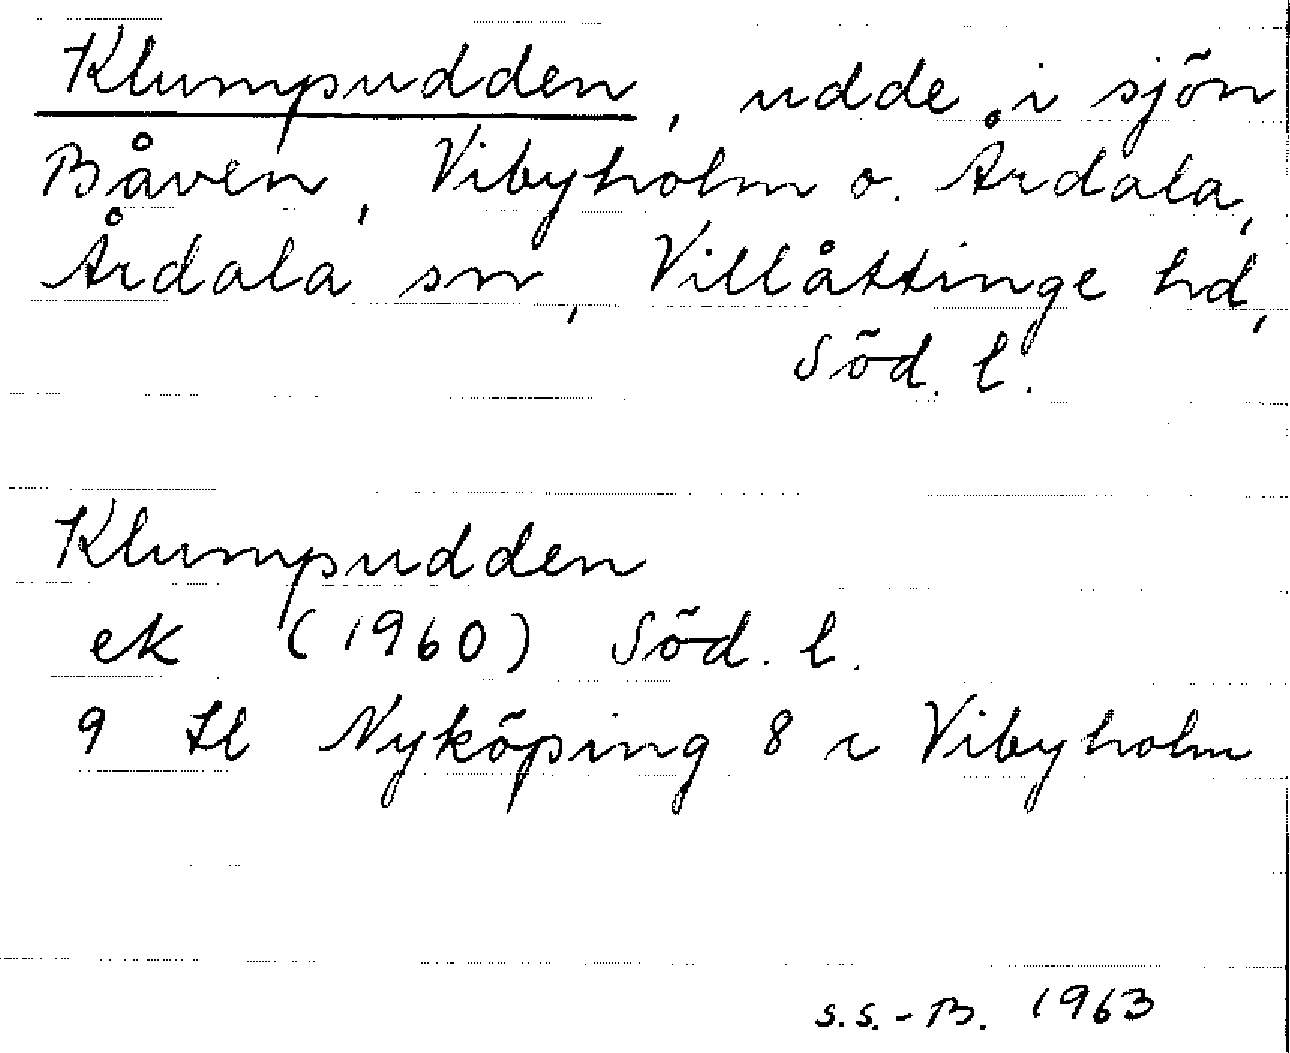 Klumpudden, udde i sjön
Båven, Vibyholm o. Årdala,
Årdala sn, Villåttinge hd,
Söd. l.
Klumpudden
ek (1960) Söd. l.
9 Il Nyköping 8 c Vibyholm
S.S.-B. 1963